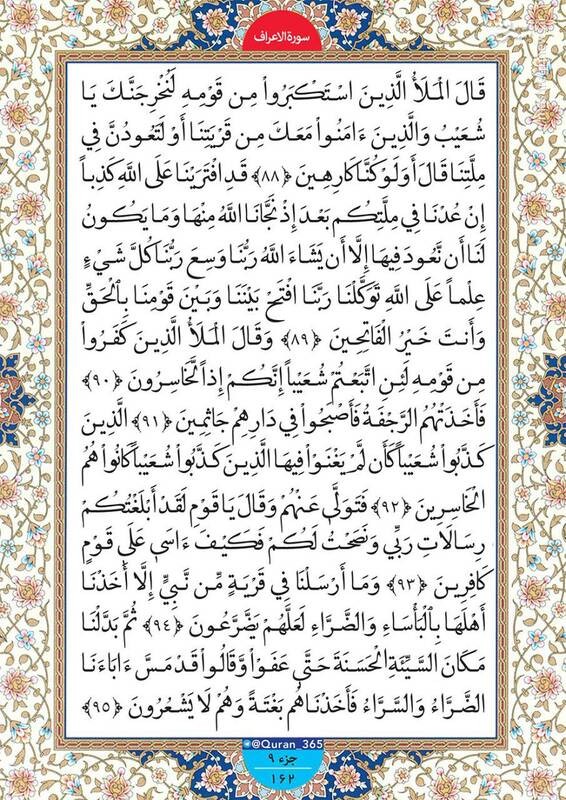 سورة الاعراف
قَالَ الْمَلَأُ الَّذِينَ اسْتَكْبَرُواْ مِن قَوْمِهِ لَنُخْرِجَنَّكَ يَا
شُعَيْبُ وَالَّذِينَ ءَامَنُواْ مَعَكَ مِن قَرْيَتِنَا أَوْ لَتَعُودُنَّ فِي
مِلَّتِنَا قَالَ أَوَلَوْ كُنَّا كَارِهِينَ ﴿٨٨﴾ قَدِ افْتَرَيْنَا عَلَى اللَّهِ كَذِباً
إِنْ عُدْنَا فِي مِلَّتِكُم بَعْدَ إِذْ نَجَّانَا اللَّهُ مِنْهَا وَمَا يَكُونُ
لَنَا أَن نَّعُودَ فِيهَا إِلَّا أَن يَشَاءَ اللَّهُ رَبُّنَا وَسِعَ رَبُّنَا كُلَّ شَيْءٍ
عِلْماً عَلَى اللَّهِ تَوَكَّلْنَا رَبَّنَا افْتَحْ بَيْنَنَا وَبَيْنَ قَوْمِنَا بِالْحَقِّ
وَأَنتَ خَيْرُ الْفَاتِحِينَ ﴿٨٩﴾ وَقَالَ الْمَلَأُ الَّذِينَ كَفَرُواْ
مِن قَوْمِهِ لَئِنِ اتَّبَعْتُمْ شُعَيْباً إِنَّكُمْ إِذاً لَّخَاسِرُونَ ﴿٩٠﴾
فَأَخَذَتْهُمُ الرَّجْفَةُ فَأَصْبَحُواْ فِي دَارِهِمْ جَاثِمِينَ ﴿٩١﴾ الَّذِينَ
كَذَّبُواْ شُعَيْباً كَأَن لَّمْ يَغْنَوْاْ فِيهَا الَّذِينَ كَذَّبُواْ شُعَيْباً كَانُواْ هُمُ
الْخَاسِرِينَ ﴿٩٢﴾ فَتَوَلَّى عَنْهُمْ وَقَالَ يَا قَوْمِ لَقَدْ أَبْلَغْتُكُمْ
رِسَالَاتِ رَبِّي وَنَصَحْتُ لَكُمْ فَكَيْفَ ءَاسَى عَلَى قَوْمٍ
كَافِرِينَ ﴿٩٣﴾ وَمَا أَرْسَلْنَا فِي قَرْيَةٍ مِّن نَّبِيٍّ إِلَّا أَخَذْنَا
أَهْلَهَا بِالْبَأْسَاءِ وَالضَّرَّاءِ لَعَلَّهُمْ يَضَّرَّعُونَ ﴿٩٤﴾ ثُمَّ بَدَّلْنَا
مَكَانَ السَّيِّئَةِ الْحَسَنَةَ حَتَّى عَفَواْ وَّقَالُواْ قَدْ مَسَّ ءَابَاءَنَا
الضَّرَّاءُ وَالسَّرَّاءُ فَأَخَذْنَاهُم بَغْتَةً وَهُمْ لَا يَشْعُرُونَ ﴿٩٥﴾
@Quran_365
جزء ٩
١٦٢